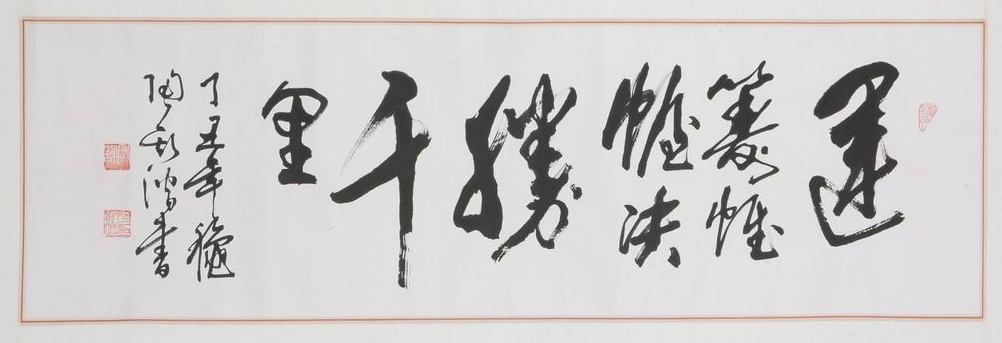 運
籌帷
幄決
勝
千
里
丁丑年穐
陶 鴻書